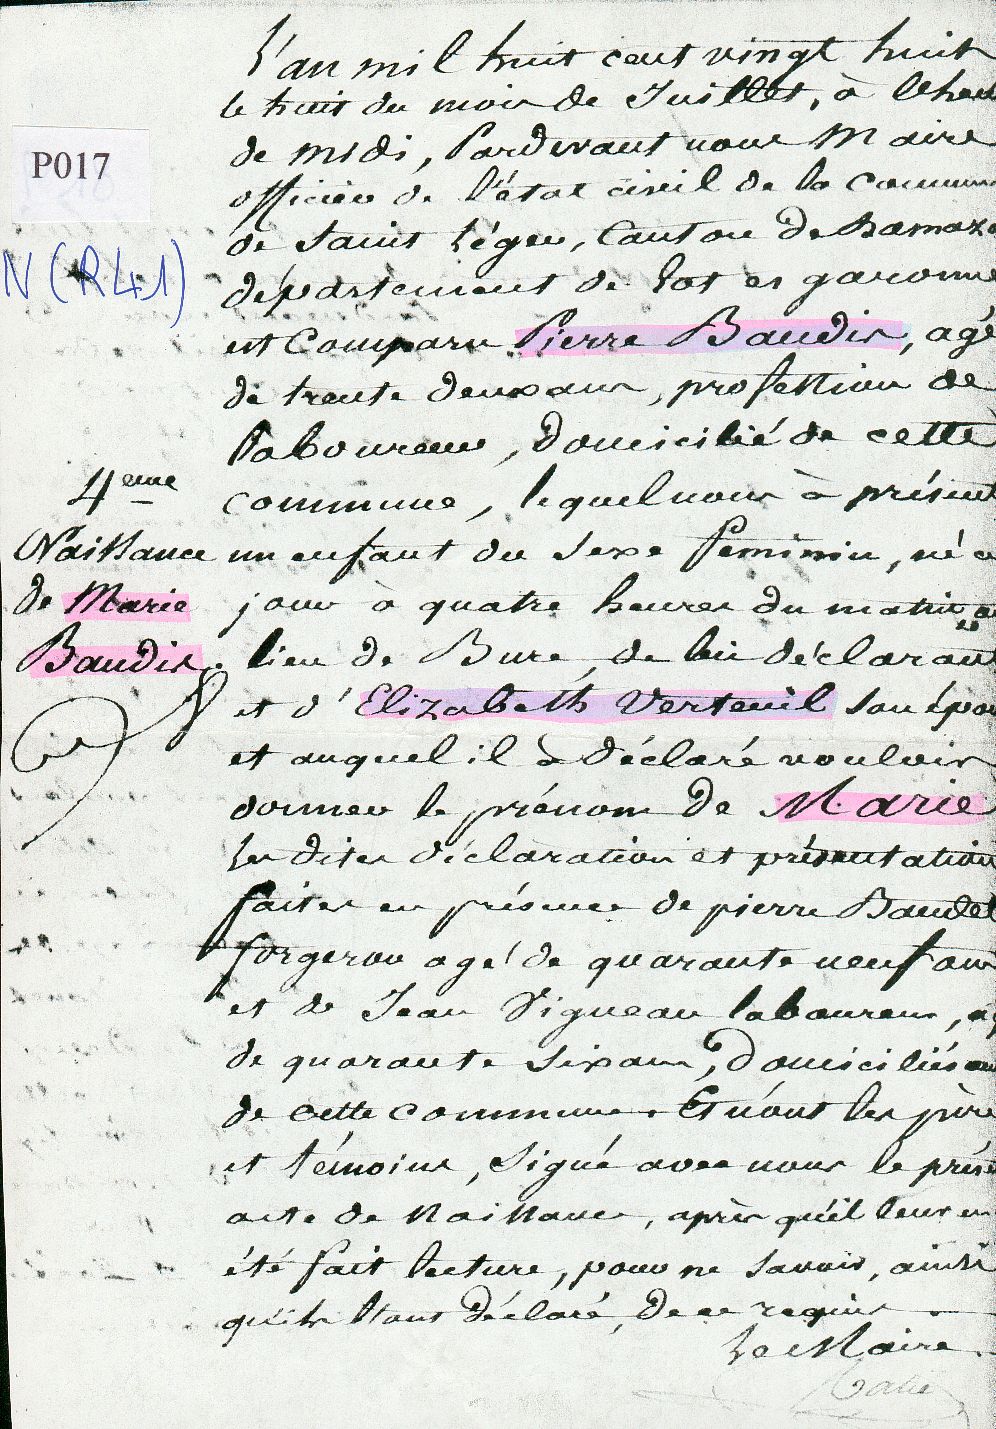 P017
N (R41)
4eme
Naissance
de Marie
Baudis.
L'an mil huit cent vingt huit
le huit du mois de Juillet, à l'heu
de midi, Pardevant nous Maire
officier de l'état civil de la commun
de Saint Léger, Canton de Damaza
département de Lot et garonne
est Comparu Pierre Baudis, agé
de trente deux ans, profession de
laboureur, Domicilié de cette
commune, lequel nous à présent
un enfant du Sexe féminin, né c
jour à quatre heures du matin, a
lieu de Buré, de lui déclarant
et d'Elizabeth Verteuil son épou
et auquel il à Déclaré vouloir
donner le prénom de Marie
Les dites déclaration et présentation
faites en présence de pierre Baudet
forgeron agé de quarante neuf ans
et de Jean Vigneau laboureur, ag
de quarante Six ans, Domiciliés
de cette commune. Et n'ont les père
et témoins, Signé avec nous le prése
acte de Naissance, après qu'il leur en
été fait lecture, pour ne Savoir, ainsi
qu'ils l'ont Déclaré, De ce requis
Le Maire.